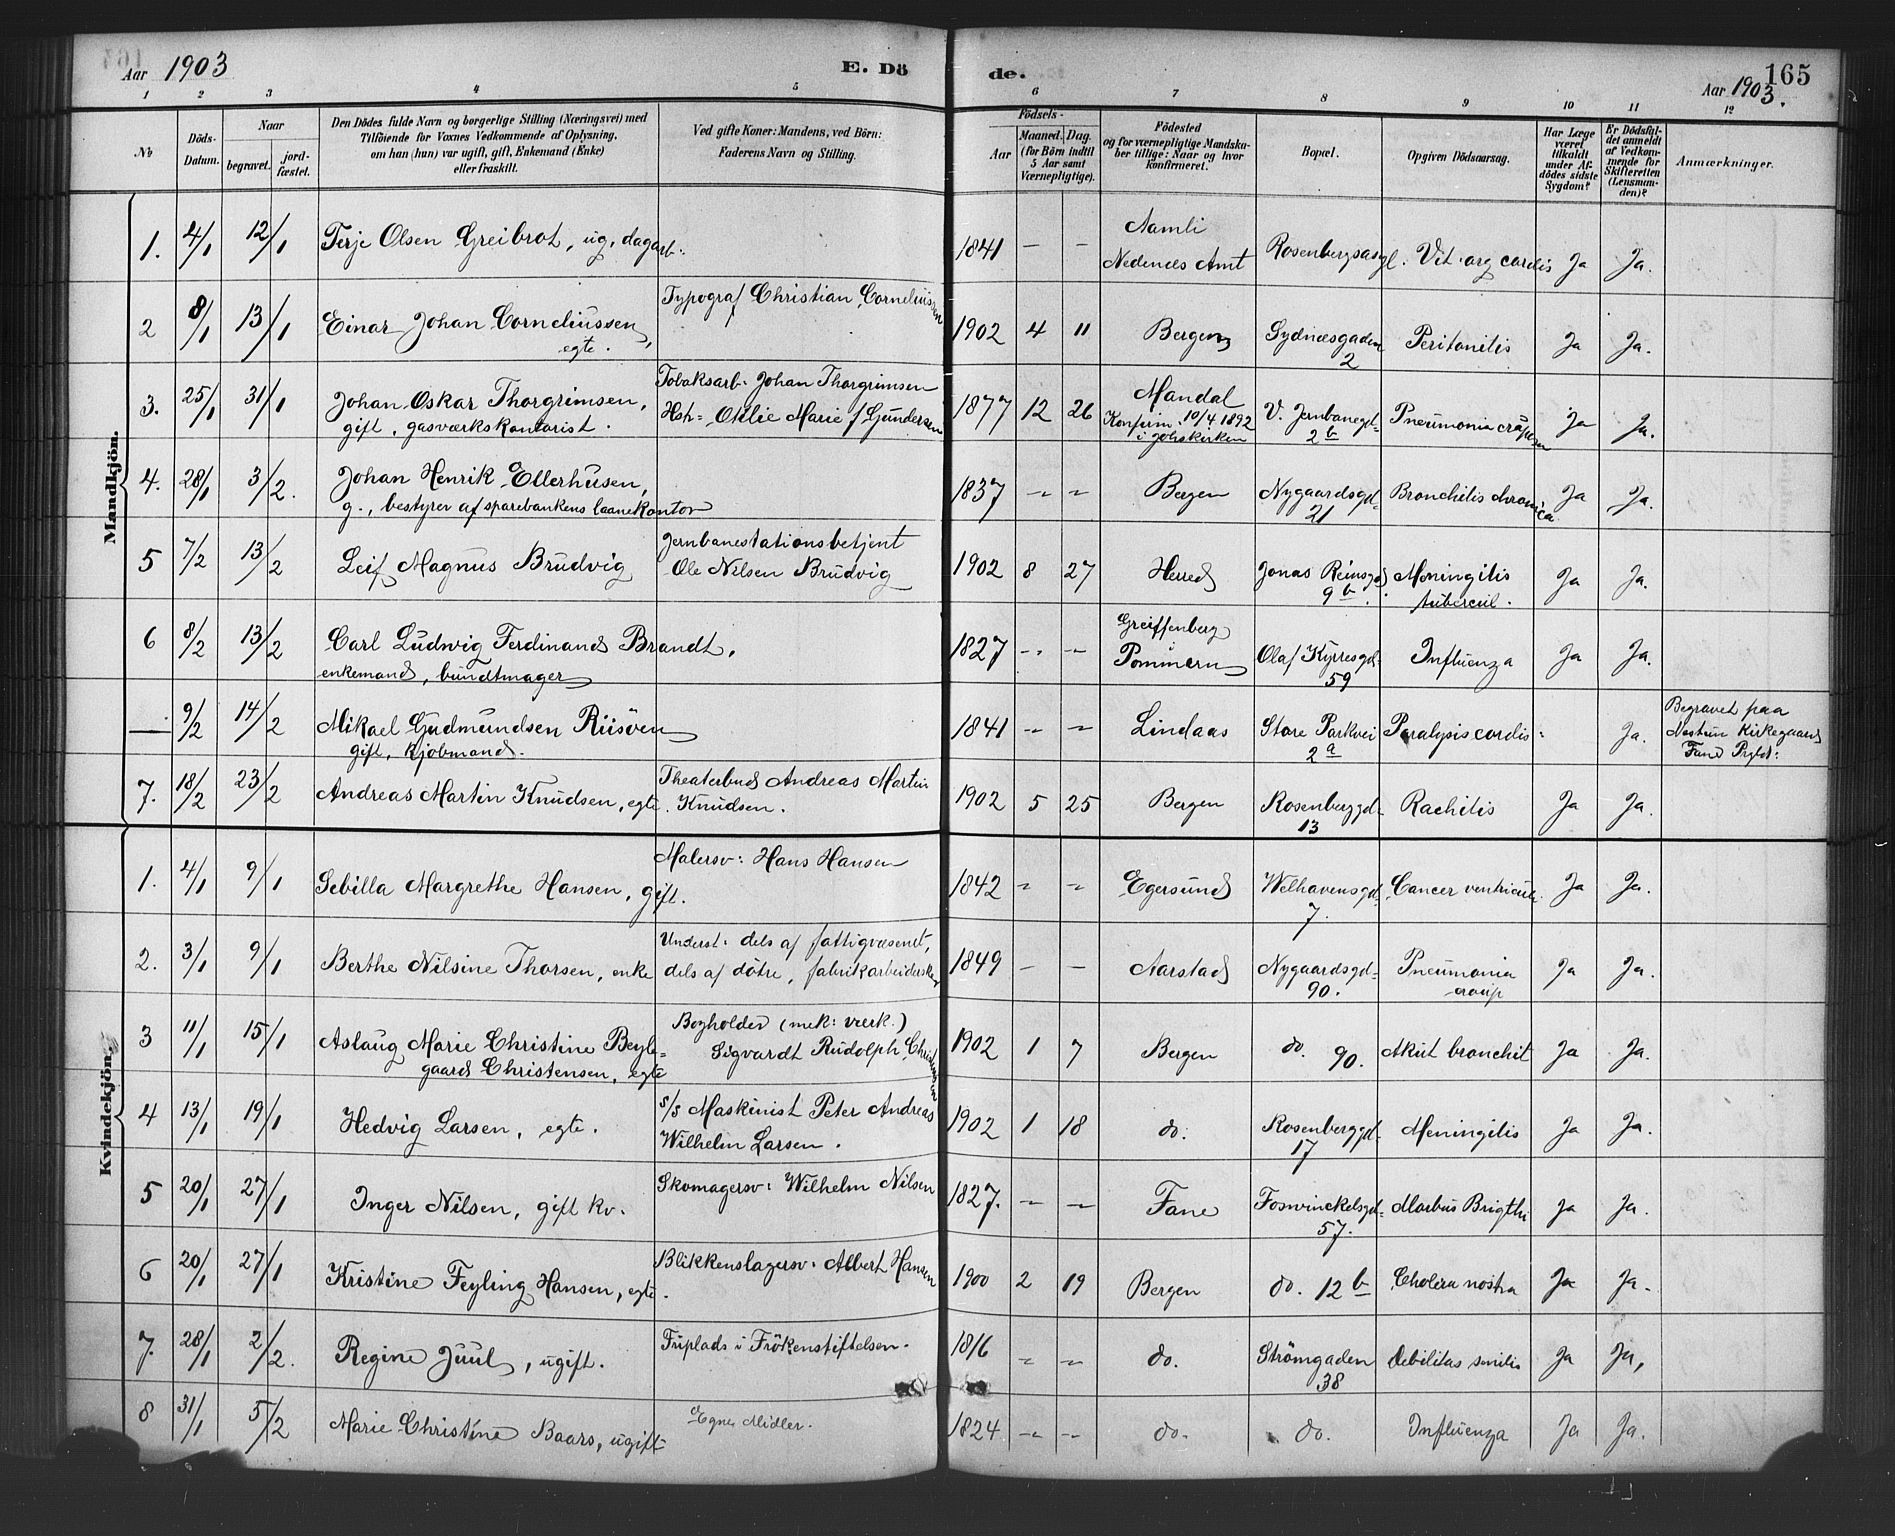 Aar 1903 E. Dö de. Aar 1903. 165
1 2 3 4 5 6 7 8 9 10 11 12
No
Döds-Datum.
Naar
begravet.
jord-fæstet.
Den Dödes fulde Navn og borgerlige Stilling (Næringsvei) med
Tilföiende for Voxnes Vedkommende af Oplysning,
om han (hun) var ugift, gift, Enkemand (Enke)
eller fraskilt.
Ved gifte Koner: Mandens, ved Börn:
Faderens Navn og Stilling.
Födsels-
Aar
Maaned. Dag.
(for Börn indtil
5 Aar samt
Værnepligtige).
Födested
og for værnepligtige Mandska-
ber tillige: Naar og hvor
konfirmeret.
Bopæl.
Opgiven Dödsaarsag.
Har Læge
været
tilkaldt
under Af-
dödes sidste
Sygdom?
Er Dödsfal-
det anmeldt
af Vedkom-
mende for
Skifteretten
(Lensman-
den)?
Anmærkninger.
Mandkjön.
1. 4/1 12/1 Terje Olsen Greibrot, ug, dagarb. 1841 - - Aamli Nedenes Amt Rosenbergsasyl. Vit. org cordis Ja Ja.
2 8/1 13/1 Einar Johan Corneliussen, egte. Typograf Christian Corneliussen 1902 4 11 Bergen Sydnæsgaden 2 Peritonitis Ja Ja.
3. 25/1 31/1 Johan Oskar Thorgrimsen, gift, gasværkskontorist. Tobaksarb. Johan Thorgrimsen Hst= Otilie Marie f Gundersen 1877 12 26 Mandal Konfirm. 10/4 1892 i Johskirken V. Jernbanegd= 2 b Pneumonia crüposa Ja Ja.
4. 28/1 3/2. Johan Henrik Ellerhusen, g., bestyrer af sparebankens laanekontor 1837 - - Bergen Nygaardsgd= 21 Bronchitis chronica Ja Ja.
5 7/2 13/2 Leif Magnus Brudvig Jernbanestationsbetjent Ole Nilsen Brudvig 1902 8 27 Herred Jonas Reinsgd 9 b. Meningitis tubercul. Ja Ja.
6 8/2 13/2 Carl Ludwig Ferdinand Brandt, enkemand, bundtmager 1827 - - Greiffenberg i Pommern Olaf Kyrresgd= 59 Influenza Ja Ja.
— 9/2 14/2 Mikael Gudmundsen Riisöen gift, kjöbmand. 1841 - - Lindaas Store Parkvei 2 a Paralysis cordis Ja. Begravet paa Nestun Kirkegaard Fane Prgld:
7. 18/2 23/2 Andreas Martin Knudsen, egte. Theaterbud Andreas Martin Knudsen. 1902 5 25 Bergen Rosenberggd= 13 Rachitis Ja Ja.
Kvindekjön.
1. 4/1 9/1 Sebilla Margrethe Hansen, gift. Malersv: Hans Hansen 1842 - - Egersund Welhavensgd= 7. Cancer ventriculi Ja Ja.
2. 3/1 9/1 Berthe Nilsine Thorsen, enke Underst: dels af fattigvæsenet, dels af dötre, fabrikarbeidersker 1849 - - Aarstad Nygaardsgd= 90. Pneumonia croup Ja Ja.
3 11/1 15/1 Aslaug Marie Christine Beyle=gaard Christensen, egte Bogholder (mek: værk.) Sigvardt Rudolph Christensen 1902 1 7 Bergen do. 90. Akut bronchit Ja Ja.
4 13/1 19/1 Hedvig Larsen, egte. s/s Maskinist Peter Andreas Wilhelm Larsen. 1902 1 18 do. Rosenberggd= 17 Meningitis Ja Ja.
5 20/1 27/1 Inger Nilsen, gift kv. Skomagersv: Wilhelm Nilsen 1827. - - Fane Foswinckelsgd= 57. Morbus Brigthi Ja Ja.
6 20/1 27/1 Kristine Feyling Hansen, egte. Blikkenslagersv: Albert Hansen 1900 2 19 Bergen do. 12 b Cholera nostra Ja Ja.
7. 28/1 2/2. Regine Juul, ugift. Friplads i Frökenstiftelsen. 1816 - - do. Strömgaden 38 Debilitas senilis Ja Ja,
8 31/1 5/2 Marie Christine Baars, ugift Egne Midler. 1824 - - do. do. Influenza Ja Ja.